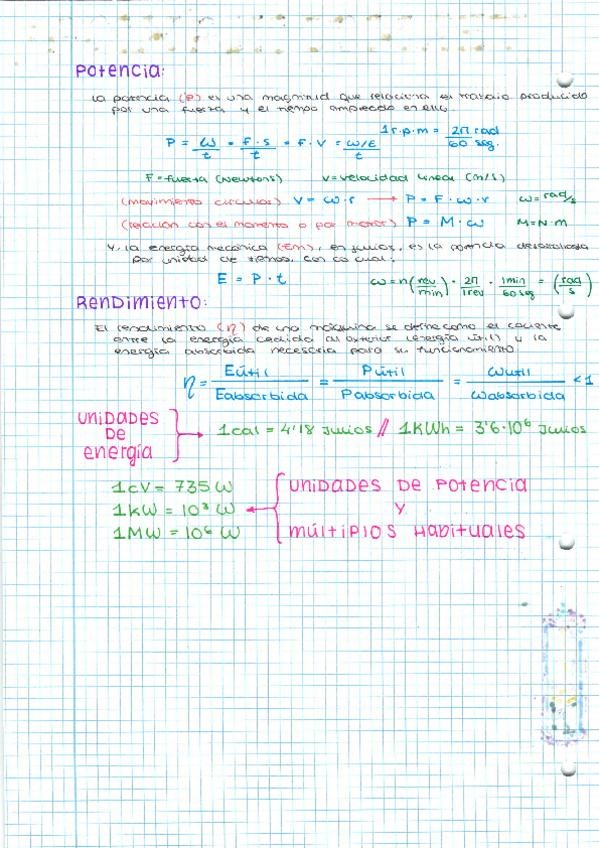 Potencia:
La potencia (P) es una magnitud que relaciona el trabajo producido
por una fuerza y el tiempo empleado en ello.
P = W/t = F·s/t = F·V = W/E/t 1r.p.m = 2π rad/60 seg.
F = fuerza (Newtons) V = velocidad lineal (m/s)
(movimiento circular) V = ω·r → P = F·ω·r ω = rad/s
(relación con el momento o par motor) P = M·ω M = N·m
Y la energía mecánica (Em), en julios, es la potencia desarrollada
por unidad de tiempo, con lo cual:
E = P·t ω = n(rev/min)·2π/1rev·1min/60seg = (rad/s)
Rendimiento:
El rendimiento (η) de una máquina se define como el cociente
entre la energía cedida al exterior (energía útil) y la
energía absorbida necesaria para su funcionamiento
η = Eútil/Eabsorbida = Pútil/Pabsorbida = Wutil/Wabsorbida < 1
UNIDADES DE energía → 1cal = 4'18 Julios // 1KWh = 3'6·10⁶ Julios
1CV = 735 W
1KW = 10³ W
1MW = 10⁶ W
UNIDADES DE POTENCIA
Y
MÚLTIPLOS HABITUALES